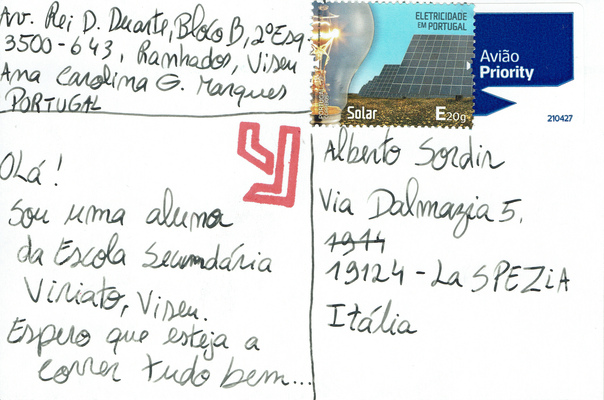 Av. Rei D. Duarte, Bloco B, 2º Esq.
3500-643, Ranhados, Viseu
Ana Carolina G. Marques
PORTUGAL
OLÁ!
Sou uma aluna
da Escola Secundária
Viriato, Viseu.
Espero que esteja a
correr tudo bem...
ELETRICIDADE
EM PORTUGAL
Solar
E20g
Avião
Priority
210427
Alberto Sordin
Via Dalmazia 5,
1914
19124 - La SPEZiA
Itália